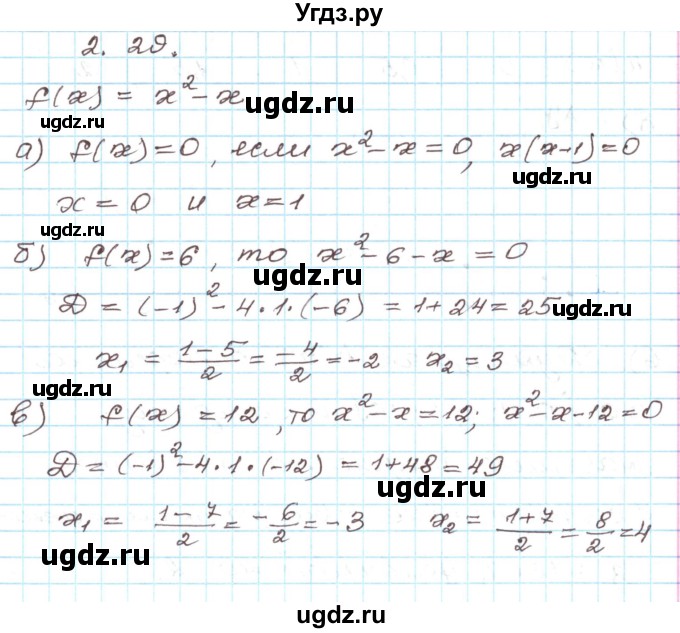 Угдз.ру
2. 29.
f(x) = x² - x
ugdz.ru
ugdz.ru
а) f(x) = 0, если x² - x = 0, x(x-1) = 0
ugdz.ru
x = 0 и x = 1
ugdz.ru
б) f(x) = 6, то x² - 6 - x = 0
ugdz.ru
Д = (-1)² - 4·1·(-6) = 1 + 24 = 25
ugdz.ru
x₁ = (1-5)/2 = -4/2 = -2 x₂ = 3
ugdz.ru
в) f(x) = 12, то x² - x = 12; x² - x - 12 = 0
Д = (-1)² - 4·1·(-12) = 1 + 48 = 49
ugdz.ru
x₁ = (1-7)/2 = -6/2 = -3 x₂ = (1+7)/2 = 8/2 = 4
ugdz.ru
ugdz.ru